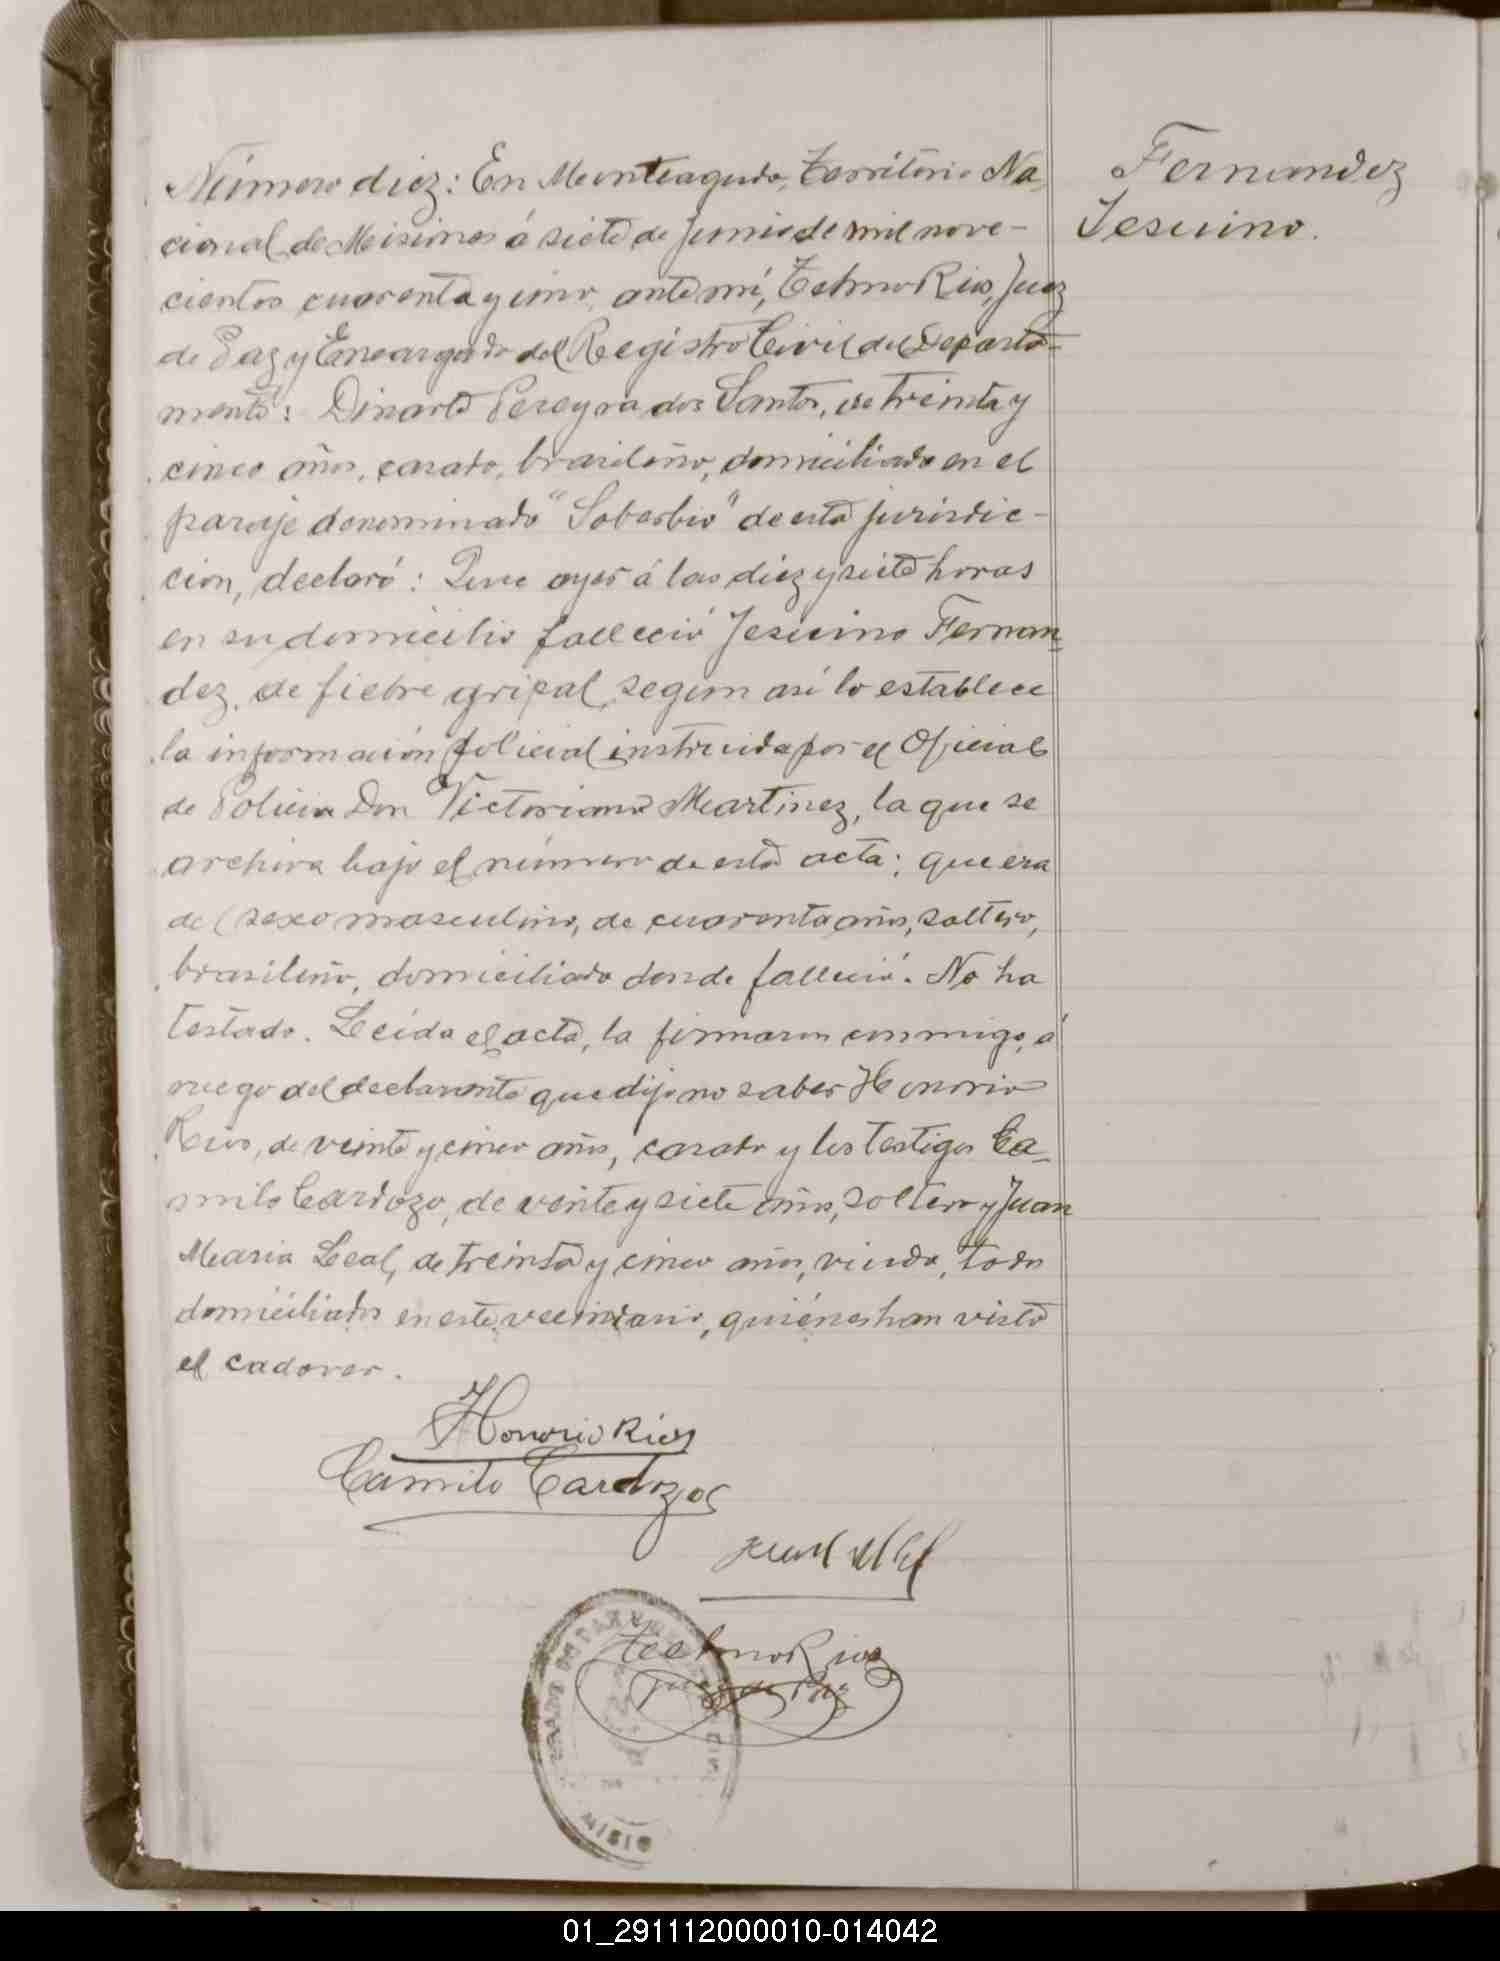 Número diez: En Monteagudo, Territorio Na-
cional de Misiones á siete de Junio de mil nove-
cientos cuarenta y uno, ante mí, Telmo Rios, Juez
de Paz y Encargado del Registro Civil del Departa-
mento: Dinarte Pereyra dos Santos, de treinta y
cinco años, casado, brasileño, domiciliado en el
paraje denominado "Soberbio" de esta jurisdic-
cion, declaró: Que ayer á las diez y siete horas
en su domicilio falleció Jesuino Fernan-
dez, de fiebre gripal, segun así lo establece
la información policial instruida por el Oficial
de Policia Don Victoriano Martinez, la que se
archiva bajo el número de esta acta; que era
del sexo masculino, de cuarenta años, soltero,
brasileño, domiciliado donde falleció. No ha
testado. Leída el acta, la firmaron conmigo, á
ruego del declarante que dijo no saber Honorio
Rios, de veinte y cinco años, casado y los testigos Ca-
milo Cardozo, de veinte y siete años, soltero y Juan
Maria Leal, de treinta y cinco años, viudo, todos
domiciliados en este vecindario, quiénes han visto
el cadaver.
Fernandez
Jesuino.
Honorio Rios
Camilo Cardozo
Juan M
Telmo Rios
Juez de Paz
01_291112000010-014042